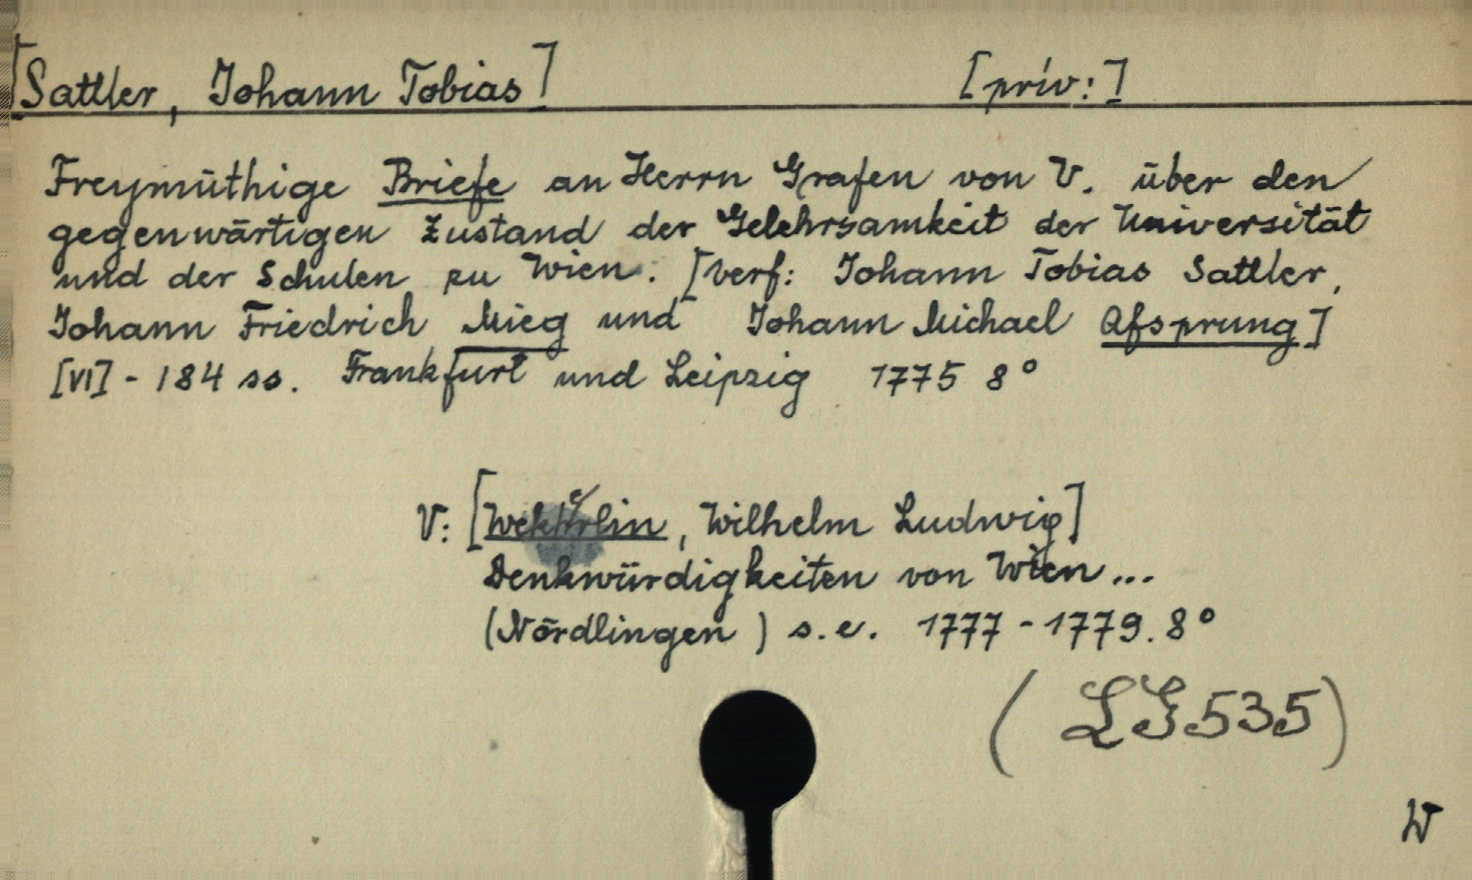 [Sattler, Johann Tobias] [priv:]
Freymüthige Briefe an Herrn Grafen von V. über den
gegenwärtigen Zustand der Gelehrsamkeit der Universität
und der Schulen zu Wien. [Verf: Johann Tobias Sattler,
Johann Friedrich Mieg und Johann Michael Afsprung]
[VI] - 184 ss. Frankfurt und Leipzig 1775 8°
V: [Wekherlin, Wilhelm Ludwig]
Denkwürdigkeiten von Wien...
(Nördlingen) s.e. 1777 - 1779. 8°
(LG 535)
W